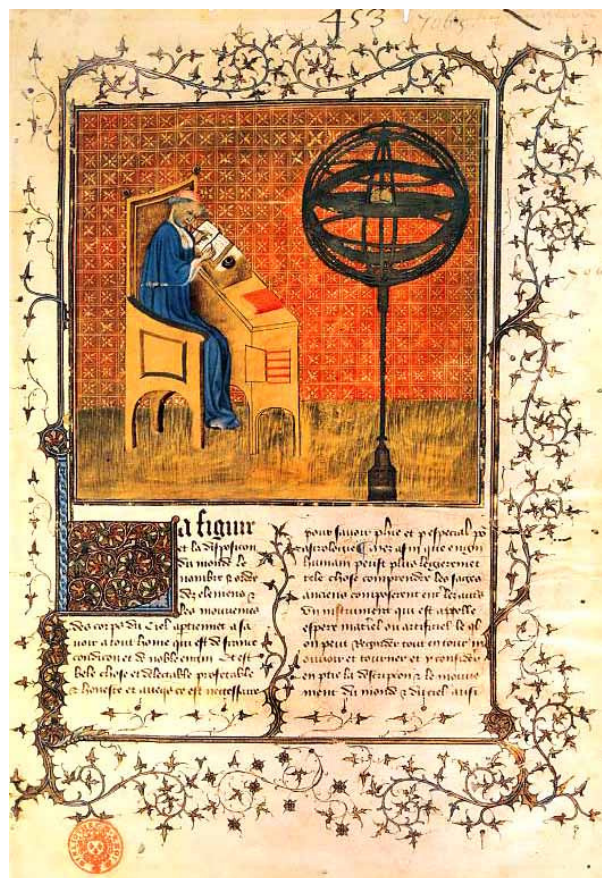 453
7065
La figure
et la disposicion
du monde le
nombre & ordre
des elemens &
les mouvemens
des corps du ciel aptiennent a sa
voir a tout home qui est de france
condicion et de noble engin Et est
bele chose et delectable profitable
& honeste et avecqs ce est necessaire
pour savoir phie et p especial po
astrologie Car afin que engin
humain peust plus legierement
tele chose comprendre les sages
anciens composerent entre les autres
un instrument qui est appelle
espere materiel ou artificiel le ql
on peut regarder tout entour m
ouvoir et tourner et y considerer
en ptie la descripcion & le mouve
ment du monde & du ciel aussi